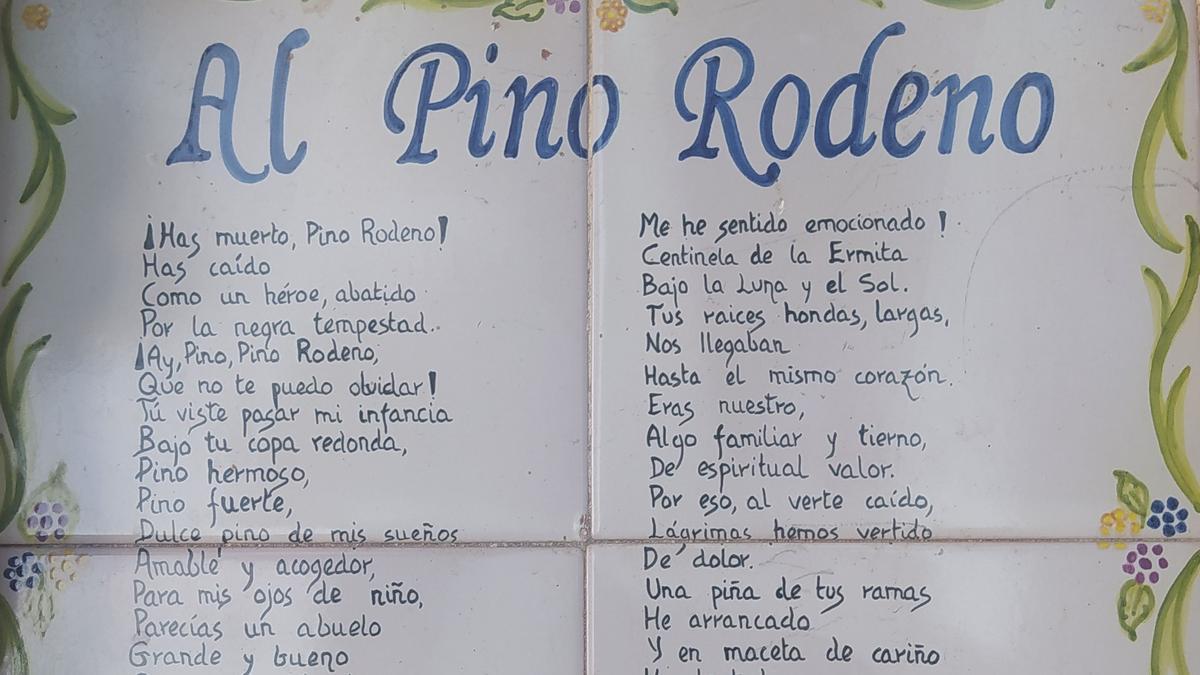 Al Pino Rodeno
¡Has muerto, Pino Rodeno!
Has caído
Como un héroe, abatido
Por la negra tempestad.
¡Ay, Pino, Pino Rodeno,
Que no te puedo olvidar!
Tú viste pasar mi infancia
Bajo tu copa redonda,
Pino hermoso,
Pino fuerte,
Dulce pino de mis sueños
Amable y acogedor,
Para mis ojos de niño,
Parecías un abuelo
Grande y bueno
Me he sentido emocionado !
Centinela de la Ermita
Bajo la Luna y el Sol.
Tus raices hondas, largas,
Nos llegaban
Hasta el mismo corazón.
Eras nuestro,
Algo familiar y tierno,
De espiritual valor.
Por eso, al verte caído,
Lágrimas hemos vertido
De dolor.
Una piña de tus ramas
He arrancado
Y en maceta de cariño